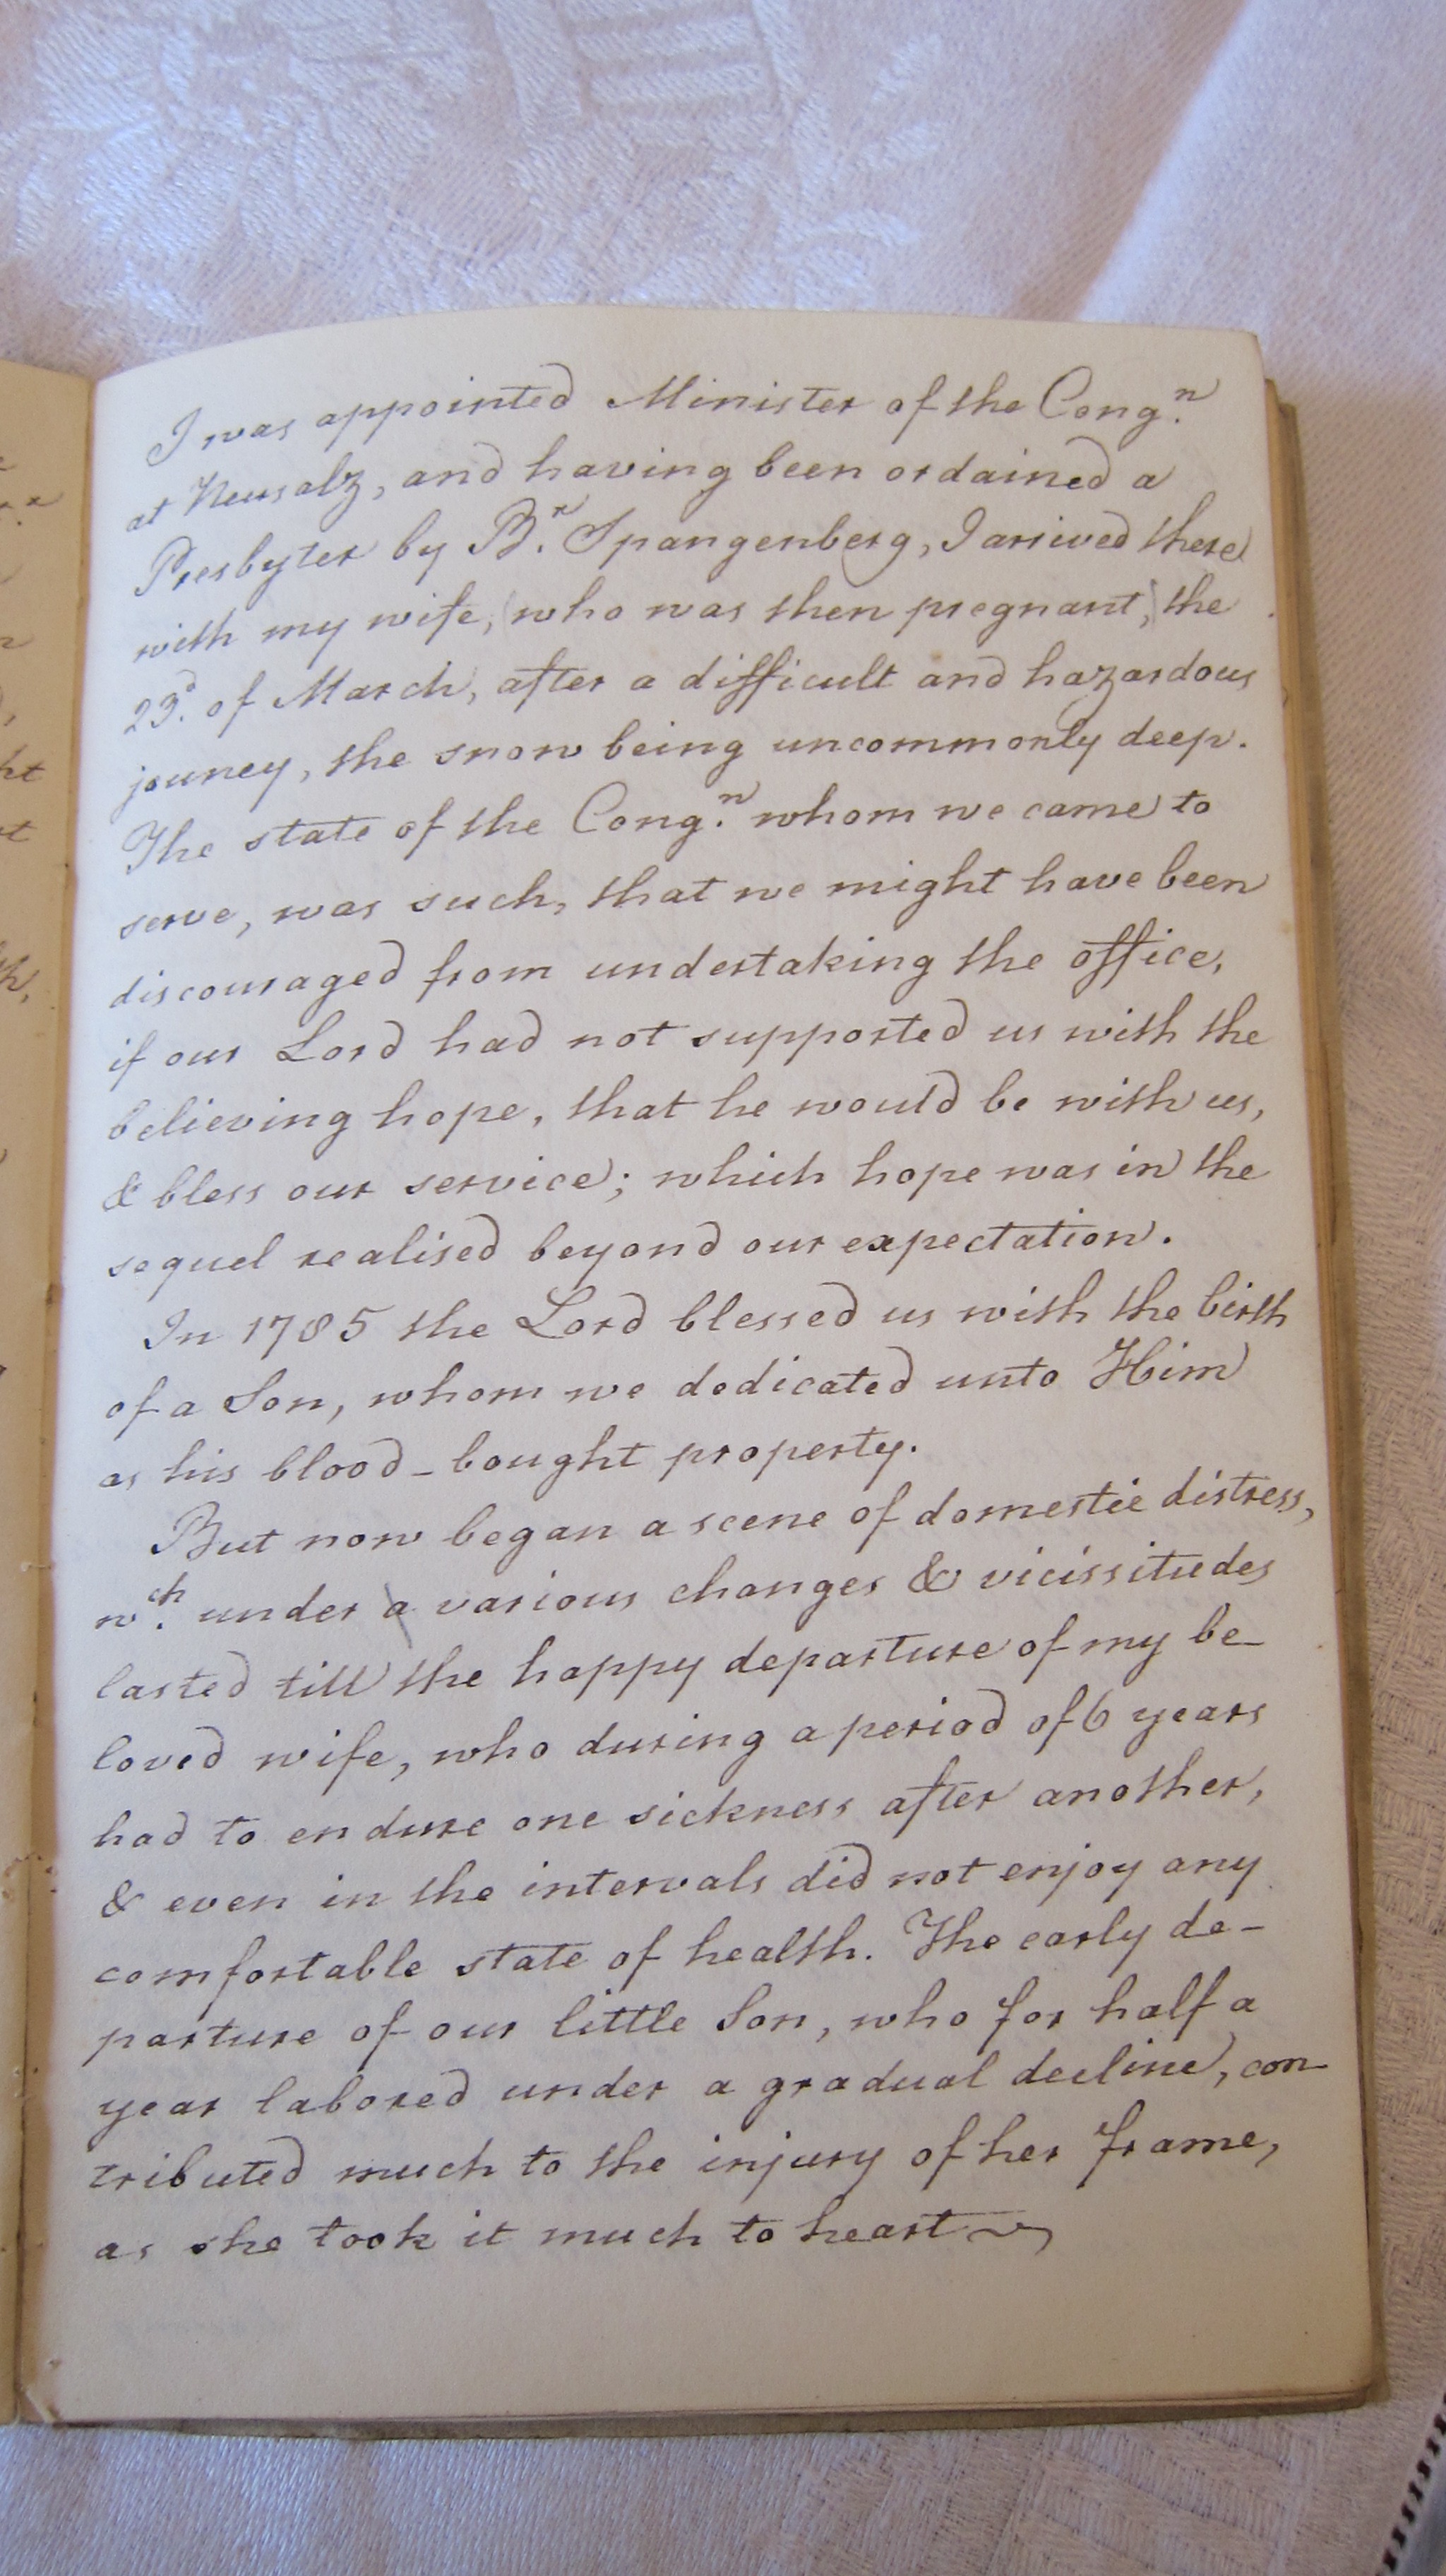 I was appointed Minister of the Cong.n
at Neusalz, and having been ordained a
Presbyter by B.r Spangenberg, I arrived there
with my wife, (who was then pregnant,) the
23.d of March, after a difficult and hazardous
jouney, the snow being uncommonly deep.
The state of the Cong.n whom we came to
serve, was such, that we might have been
discouraged from undertaking the office,
if our Lord had not supported us with the
believing hope, that he would be with us,
& bless our service; which hope was in the
sequel realised beyond our expectation.
In 1785 the Lord blessed us with the birth
of a Son, whom we dedicated unto Him
as his blood-bought property.
But now began a scene of domestic distress,
w.ch under a various changes & vicissitudes
lasted till the happy departure of my be-
loved wife, who during a period of 6 years
had to endure one sickness after another,
& even in the intervals did not enjoy any
comfortable state of health. The early de-
parture of our little Son, who for half a
year labored under a gradual decline, con-
tributed much to the injury of her frame,
as she took it much to heart